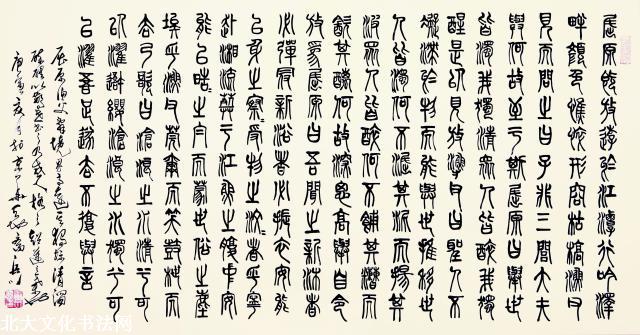 屈原既放遊於江潭行吟澤
畔顏色憔悴形容枯槁漁父
見而問之曰子非三閭大夫
與何故至於斯屈原曰舉世
皆濁我獨清眾人皆醉我獨
醒是以見放漁父曰聖人不
凝滯於物而能與世推移世
人皆濁何不淈其泥而揚其
波眾人皆醉何不餔其糟而
歠其醨何故深思高舉自令
放為屈原曰吾聞之新沐者
必彈冠新浴者必振衣安能
以身之察察受物之汶汶者乎寧
赴湘流葬於江魚之腹中安
能以皓皓之白而蒙世俗之塵
埃乎漁父莞爾而笑鼓枻而
去乃歌曰滄浪之水清兮可
以濯吾纓滄浪之水濁兮可
以濯吾足遂去不復與言
屈原漁父
北大文化书法网